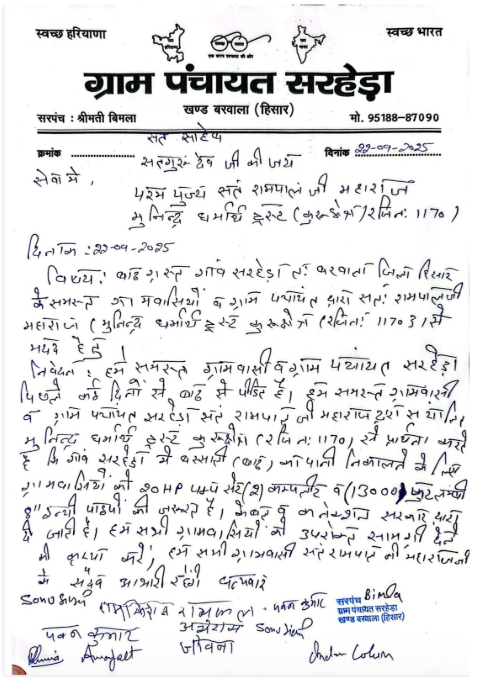 स्वच्छ हरियाणा
स्वच्छ भारत
ग्राम पंचायत सरहेड़ा
खण्ड बरवाला (हिसार)
सरपंच : श्रीमती बिमला
मो. 95188-87090
सत साहेब
क्रमांक
दिनांक 22-09-2025
सतगुरु देव जी की जय
सेवा मे,
परम पुज्य संत रामपाल जी महाराज
मुनिन्द्र धर्मार्थ ट्रस्ट (कुरुक्षेत्र) रजि नं: 1170)
दिनांक :22-09-2025
विषय: बाढ ग्रस्त गांव सरहेड़ा त: बरवाला जिला हिसार
के समस्त ग्रामवासियों व ग्राम पंचायत द्वारा संत रामपाल जी
महाराज (मुनिन्द्र धर्मार्थ ट्रस्ट कुरुक्षेत्र (रजि नं: 1170) से
मदद हेतु।
निवेदन: हम समस्त ग्रामवासी व ग्राम पंचायत सरहेड़ा
पिछले कई दिनों से बाढ से पीडित है। हम समस्त ग्रामवासी
व ग्राम पंचायत सरहेड़ा संत रामपाल जी महाराज द्वारा
मुनिन्द्र धर्मार्थ ट्रस्ट कुरुक्षेत्र (रजि नं: 1170) से प्रार्थना करते
है कि गांव सरहेड़ा मे बरसाती (बाढ) का पानी निकालने के लिए
ग्रामवासियों को 20HP पम्प सेट (2) व (13000) फुट लम्बी
8" इन्ची पाईपों की जरुरत है। व कनेक्शन सरकार द्वारा
दी जाती है। हम सभी ग्रामवासियों को उपरोक्त सामग्री देने
की कृपया करें, हम सभी ग्रामवासी संत रामपाल जी महाराज जी
के सदैव आभारी रहेंगे धन्यवाद
पवन कुमार
Bimla
सरपंच
ग्राम पंचायत सरहेड़ा
खण्ड बरवाला (हिसार)
पवन कुमार